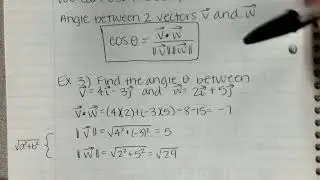 Angle between 2 vectors v⃗ and w⃗
cosθ = v⃗•w⃗ / ‖v⃗‖‖w⃗‖
Ex 3) Find the angle θ between
v⃗ = 4i⃗ - 3j⃗ and w⃗ = 2i⃗ + 5j⃗
v⃗•w⃗ = (4)(2)+(-3)(5) = 8-15 = -7
√a²+b² { ‖v⃗‖ = √4²+(-3)² = 5
‖w⃗‖ = √2²+5² = √29